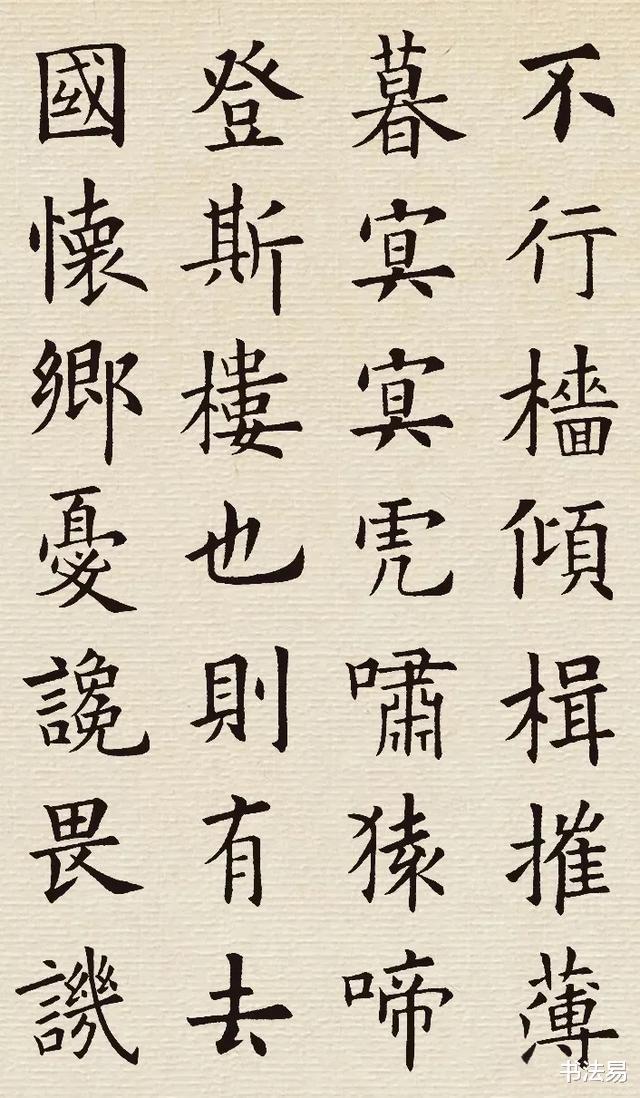 不行檣傾楫摧薄
暮冥冥虎嘯猿啼
登斯樓也則有去
國懷鄉憂讒畏譏
书法易